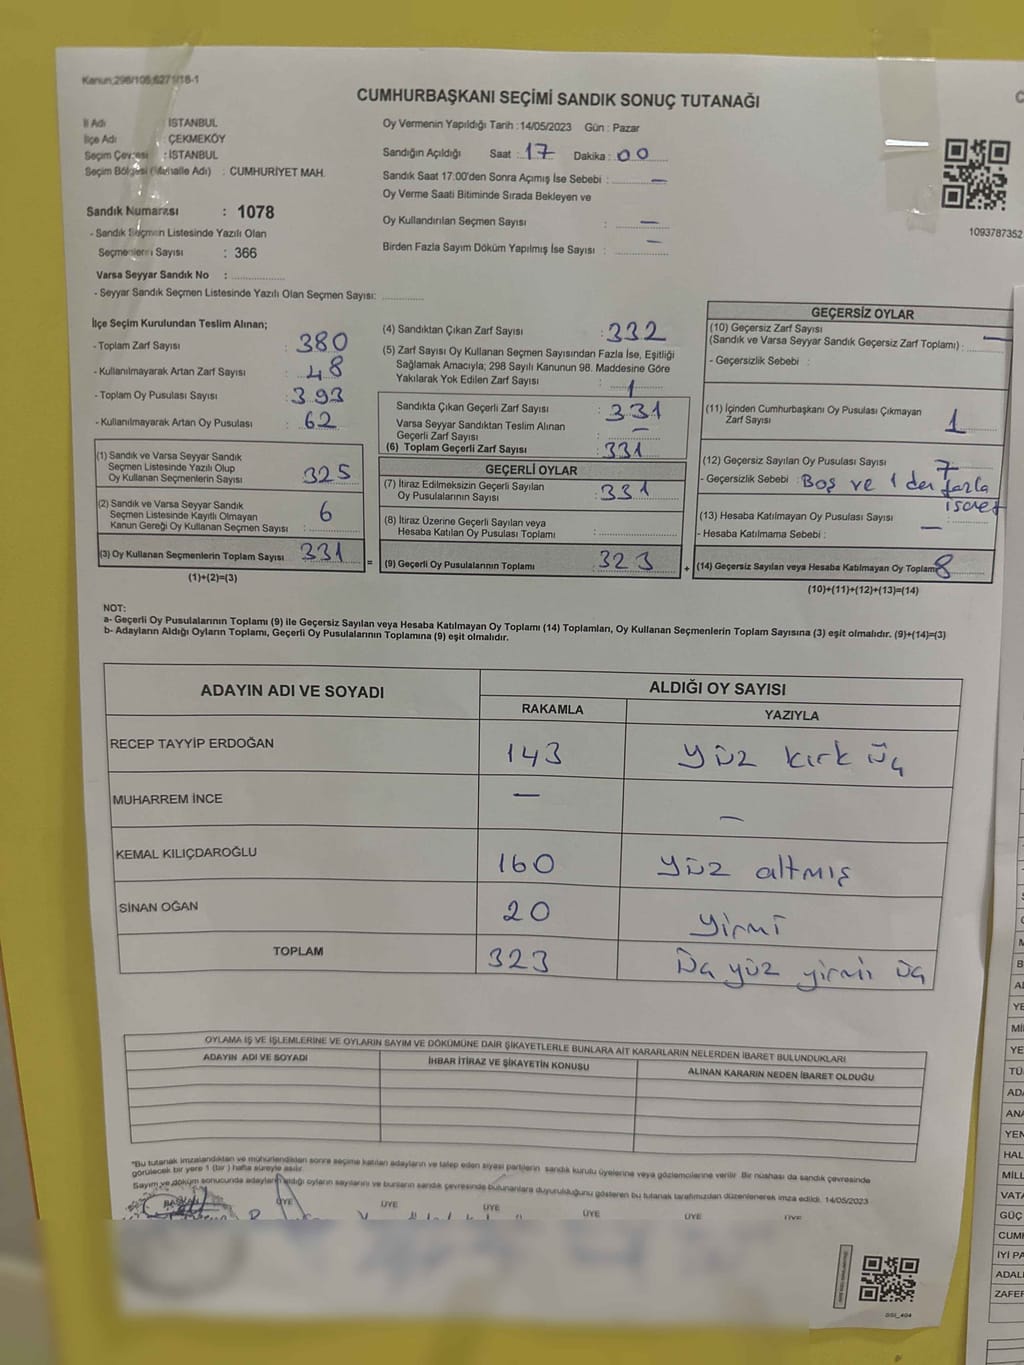 Kanun;298/105;6271/18-1
CUMHURBAŞKANI SEÇİMİ SANDIK SONUÇ TUTANAĞI
İl Adı : İSTANBUL
İlçe Adı : ÇEKMEKÖY
Seçim Çevresi : İSTANBUL
Seçim Bölgesi (Mahalle Adı) : CUMHURİYET MAH.
Sandık Numarası : 1078
- Sandık Seçmen Listesinde Yazılı Olan
Seçmenlerin Sayısı : 366
Varsa Seyyar Sandık No :
- Seyyar Sandık Seçmen Listesinde Yazılı Olan Seçmen Sayısı:
Oy Vermenin Yapıldığı Tarih : 14/05/2023 Gün : Pazar
Sandığın Açıldığı Saat : 17 Dakika : 00
Sandık Saat 17:00'den Sonra Açımış İse Sebebi : —
Oy Verme Saati Bitiminde Sırada Bekleyen ve
Oy Kullandırılan Seçmen Sayısı : —
Birden Fazla Sayım Döküm Yapılmış İse Sayısı : —
1093787352
İlçe Seçim Kurulundan Teslim Alınan;
- Toplam Zarf Sayısı : 380
- Kullanılmayarak Artan Zarf Sayısı : 48
- Toplam Oy Pusulası Sayısı : 393
- Kullanılmayarak Artan Oy Pusulası : 62
(1) Sandık ve Varsa Seyyar Sandık
Seçmen Listesinde Yazılı Olup
Oy Kullanan Seçmenlerin Sayısı : 325
(2) Sandık ve Varsa Seyyar Sandık
Seçmen Listesinde Kayıtlı Olmayan
Kanun Gereği Oy Kullanan Seçmen Sayısı : 6
(3) Oy Kullanan Seçmenlerin Toplam Sayısı : 331
(1)+(2)=(3)
(4) Sandıktan Çıkan Zarf Sayısı : 332
(5) Zarf Sayısı Oy Kullanan Seçmen Sayısından Fazla İse, Eşitliği
Sağlamak Amacıyla; 298 Sayılı Kanunun 98. Maddesine Göre
Yakılarak Yok Edilen Zarf Sayısı : 1
Sandıkta Çıkan Geçerli Zarf Sayısı : 331
Varsa Seyyar Sandıktan Teslim Alınan
Geçerli Zarf Sayısı : —
(6) Toplam Geçerli Zarf Sayısı : 331
GEÇERLİ OYLAR
(7) İtiraz Edilmeksizin Geçerli Sayılan
Oy Pusulalarının Sayısı : 331
(8) İtiraz Üzerine Geçerli Sayılan veya
Hesaba Katılan Oy Pusulası Toplamı :
= (9) Geçerli Oy Pusulalarının Toplamı : 323
GEÇERSİZ OYLAR
(10) Geçersiz Zarf Sayısı
(Sandık ve Varsa Seyyar Sandık Geçersiz Zarf Toplamı) : —
- Geçersizlik Sebebi :
(11) İçinden Cumhurbaşkanı Oy Pusulası Çıkmayan
Zarf Sayısı : 1
(12) Geçersiz Sayılan Oy Pusulası Sayısı : 7
- Geçersizlik Sebebi : Boş ve 1 den fazla
işaret
(13) Hesaba Katılmayan Oy Pusulası Sayısı : —
- Hesaba Katılmama Sebebi :
+ (14) Geçersiz Sayılan veya Hesaba Katılmayan Oy Toplamı 8
(10)+(11)+(12)+(13)=(14)
NOT:
a- Geçerli Oy Pusulalarının Toplamı (9) ile Geçersiz Sayılan veya Hesaba Katılmayan Oy Toplamı (14) Toplamları, Oy Kullanan Seçmenlerin Toplam Sayısına (3) eşit olmalıdır. (9)+(14)=(3)
b- Adayların Aldığı Oyların Toplamı, Geçerli Oy Pusulalarının Toplamına (9) eşit olmalıdır.
ADAYIN ADI VE SOYADI ALDIĞI OY SAYISI
RAKAMLA YAZIYLA
RECEP TAYYİP ERDOĞAN 143 Yüz kırk üç
MUHARREM İNCE — —
KEMAL KILIÇDAROĞLU 160 Yüz altmış
SİNAN OĞAN 20 Yirmi
TOPLAM 323 Üç yüz yirmi üç
OYLAMA İŞ VE İŞLEMLERİNE VE OYLARIN SAYIM VE DÖKÜMÜNE DAİR ŞİKAYETLERLE BUNLARA AİT KARARLARIN NELERDEN İBARET BULUNDUKLARI
ADAYIN ADI VE SOYADI İHBAR İTİRAZ VE ŞİKAYETİN KONUSU ALINAN KARARIN NEDEN İBARET OLDUĞU
"Bu tutanak imzalandıktan ve mühürlendikten sonra seçime katılan adayların ve talep eden siyasi partilerin sandık kurulu üyelerine veya gözlemcilerine verilir. Bir nüshası da sandık çevresinde
görülecek bir yere 1 (bir) hafta süreyle asılır.
Sayım ve döküm sonucunda adayların aldığı oyların sayılarını ve bunların sandık çevresinde bulunanlara duyurulduğunu gösteren bu tutanak tarafımızdan düzenlenerek imza edildi. 14/05/2023
BAŞKAN ÜYE ÜYE ÜYE ÜYE ÜYE ÜYE
SSI_404
YE
TÜ
YEN
HAL
MİLL
VATA
GÜÇ
CUMI
İYİ PA
ADALI
ZAFER